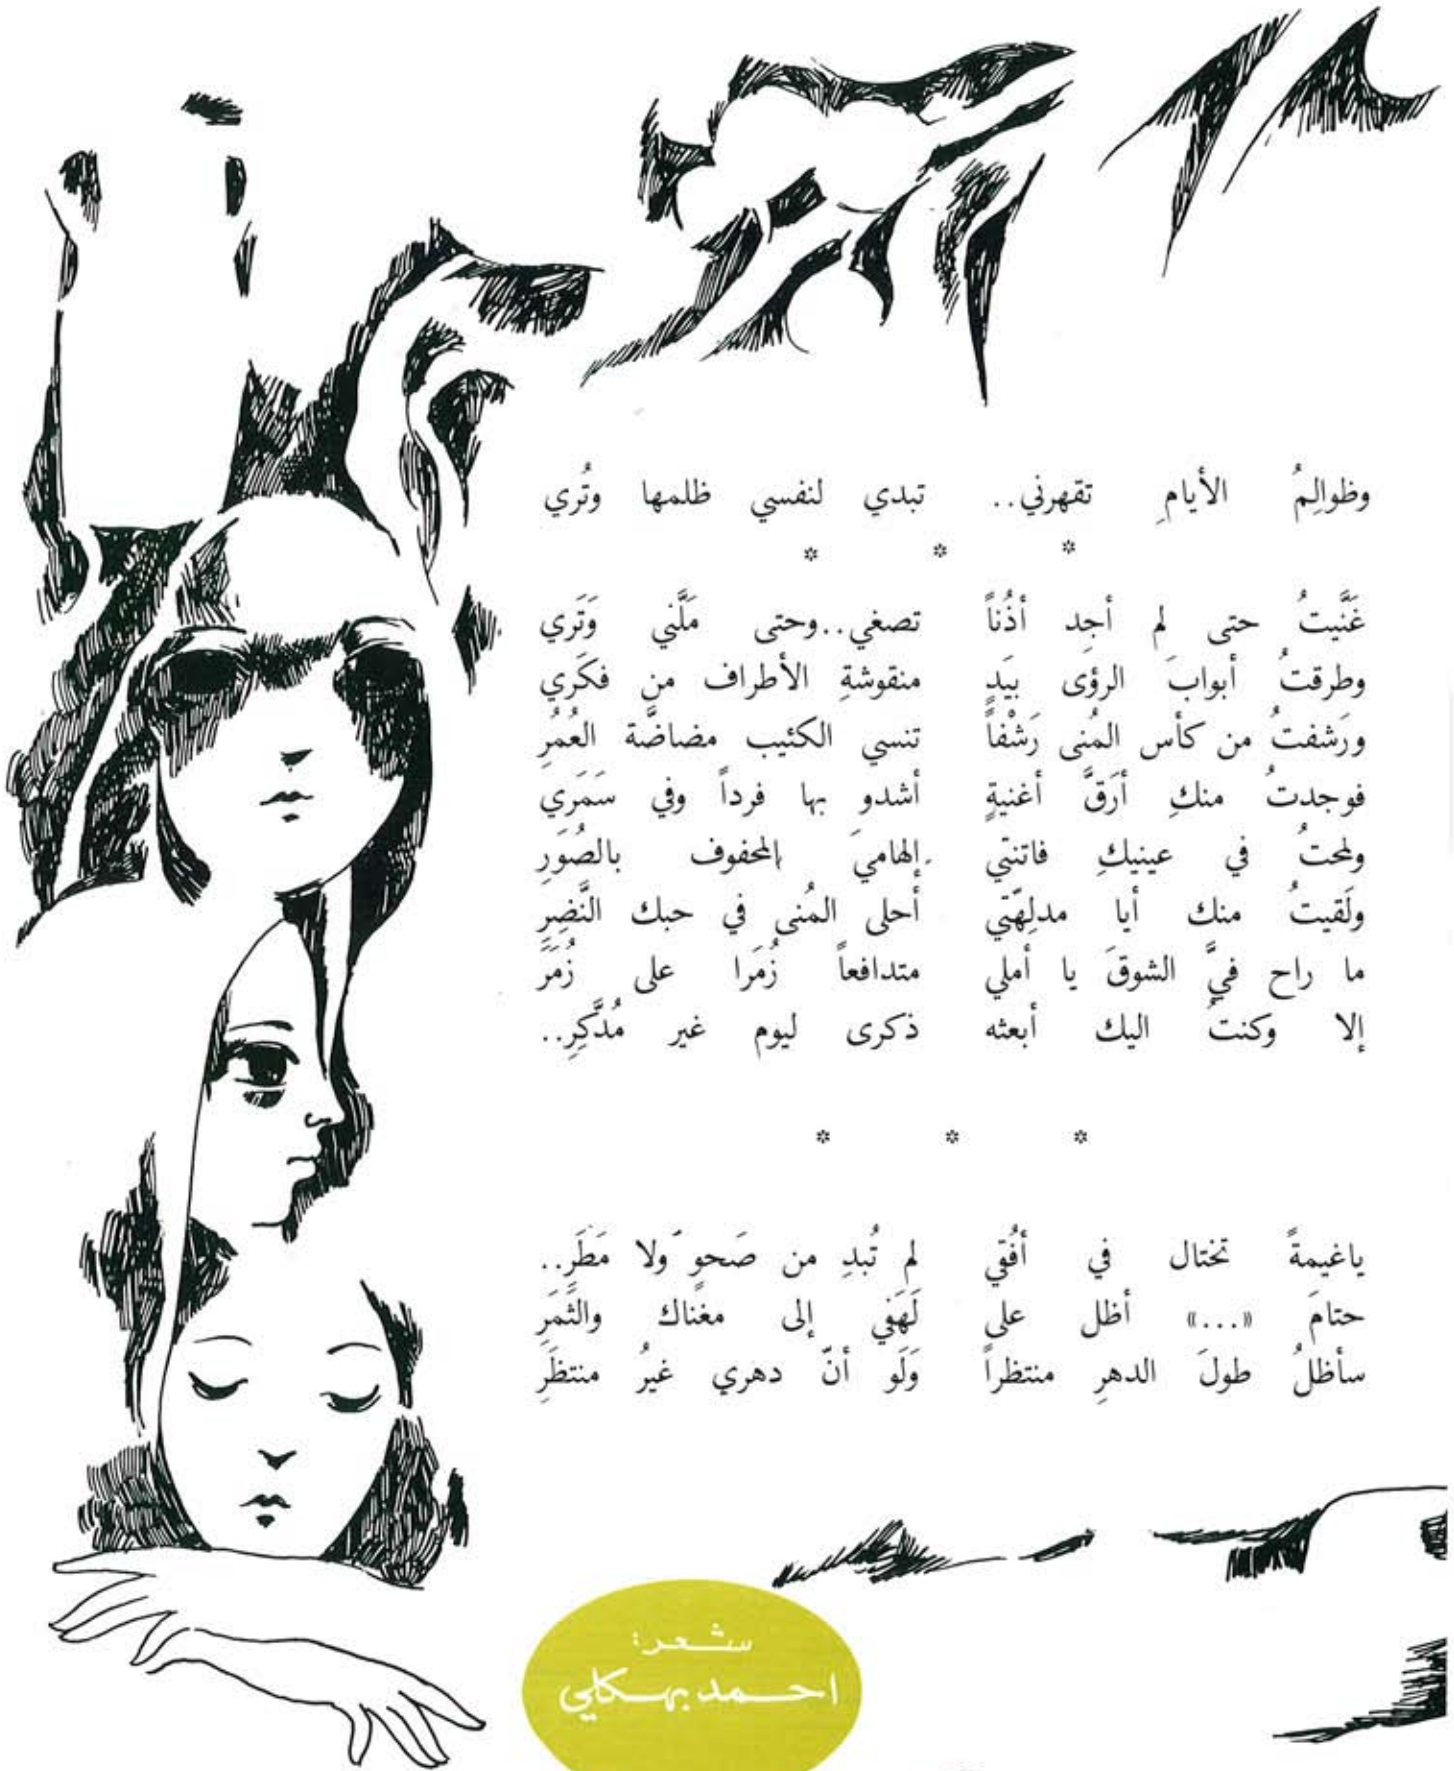 وظوالِمُ الأيامِ تقهرني.. تبدي لنفسي ظلمها وتُري
* * *
غَنَّيتُ حتى لم أجِد أذُناً تصغي..وحتى مَلَّني وَتَري
وطرقتُ أبوابَ الرؤى بيَدٍ منقوشةِ الأطراف من فكَري
ورَشفتُ من كأس المُنى رَشْفاً تنسي الكئيب مضاضَّة العُمُرِ
فوجدتُ منكِ أرَقَّ أغنيةٍ أشدو بها فرداً وفي سَمَرَي
ولمحتُ في عينيكِ فاتنتي إلهاميَ المحفوف بالصُوَرِ
ولَقيتُ منك أيا مدلِهّتي أحلى المُنى في حبك النَّضِرِ
ما راح فيَّ الشوقَ يا أملي متدافعاً زُمَرا على زُمَرَ
إلا وكنتُ اليك أبعثه ذكرى ليوم غير مُدَّكِرِ..
* * *
ياغيمةً تختال في أفُقي لم تُبدِ من صَحوٍ ولا مَطَرِ..
حتامَ «...» أظل على لَهَفي إلى مغناك والثَمَرِ
سأظلُ طولَ الدهرِ منتظراً وَلَو أنّ دهري غيرُ منتظَرِ
شعر:
احمد بهكلي